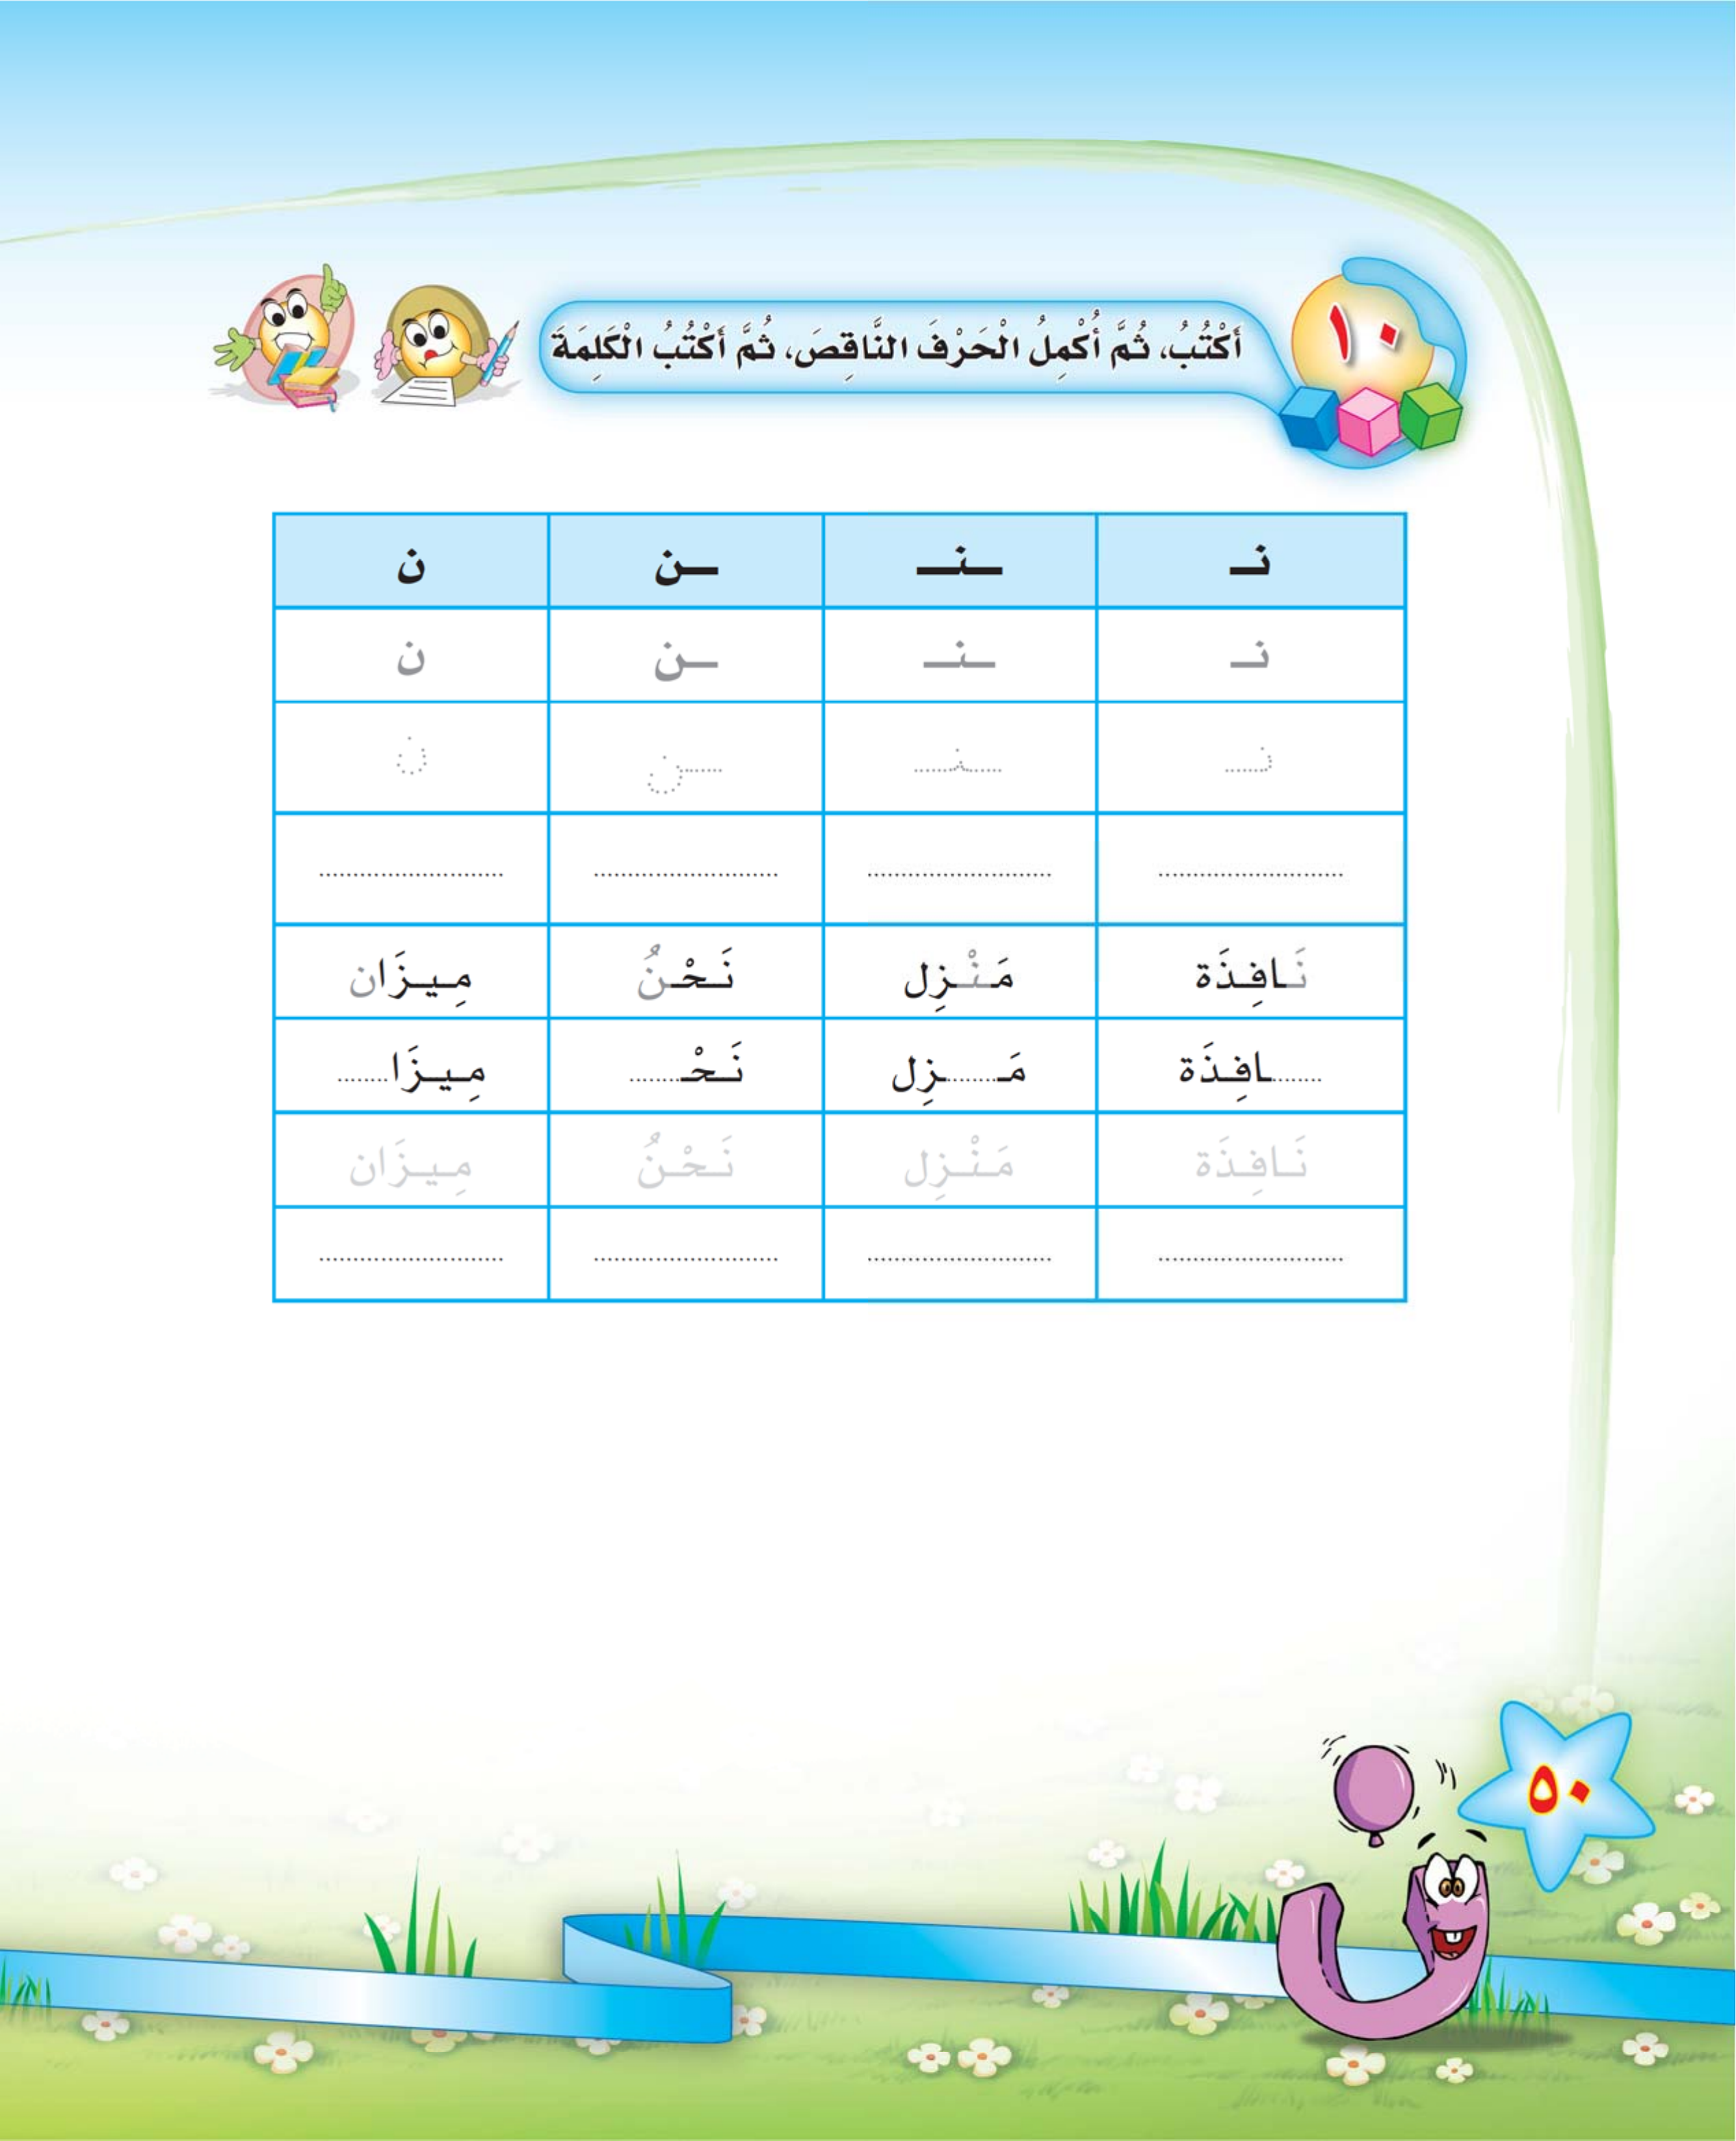 ١٠
أَكْتُبُ، ثُمَّ أُكْمِلُ الْحَرْفَ النَّاقِصَ، ثُمَّ أَكْتُبُ الْكَلِمَةَ
نـ ـنـ ـن ن
نـ ـنـ ـن ن
نـ ـنـ ـن ن
........................... ........................... ........................... ...........................
نَـافِـذَة مَـنْـزِل نَـحْـنُ مِـيـزَان
........ـافِـذَة مَـ........ـزِل نَـحْـ........ مِـيـزَا........
نَـافِـذَة مَـنْـزِل نَـحْـنُ مِـيـزَان
........................... ........................... ........................... ...........................
٥٠